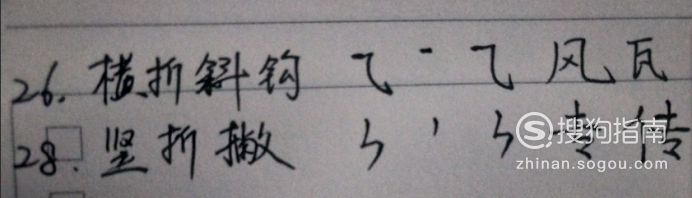 26. 横折斜钩 ⺄ ㇀ ⺄ 风 瓦
28. 竖折撇 ㄣ 丨 ㄣ 专 传
S 搜狗指南
zhinan.sogou.com